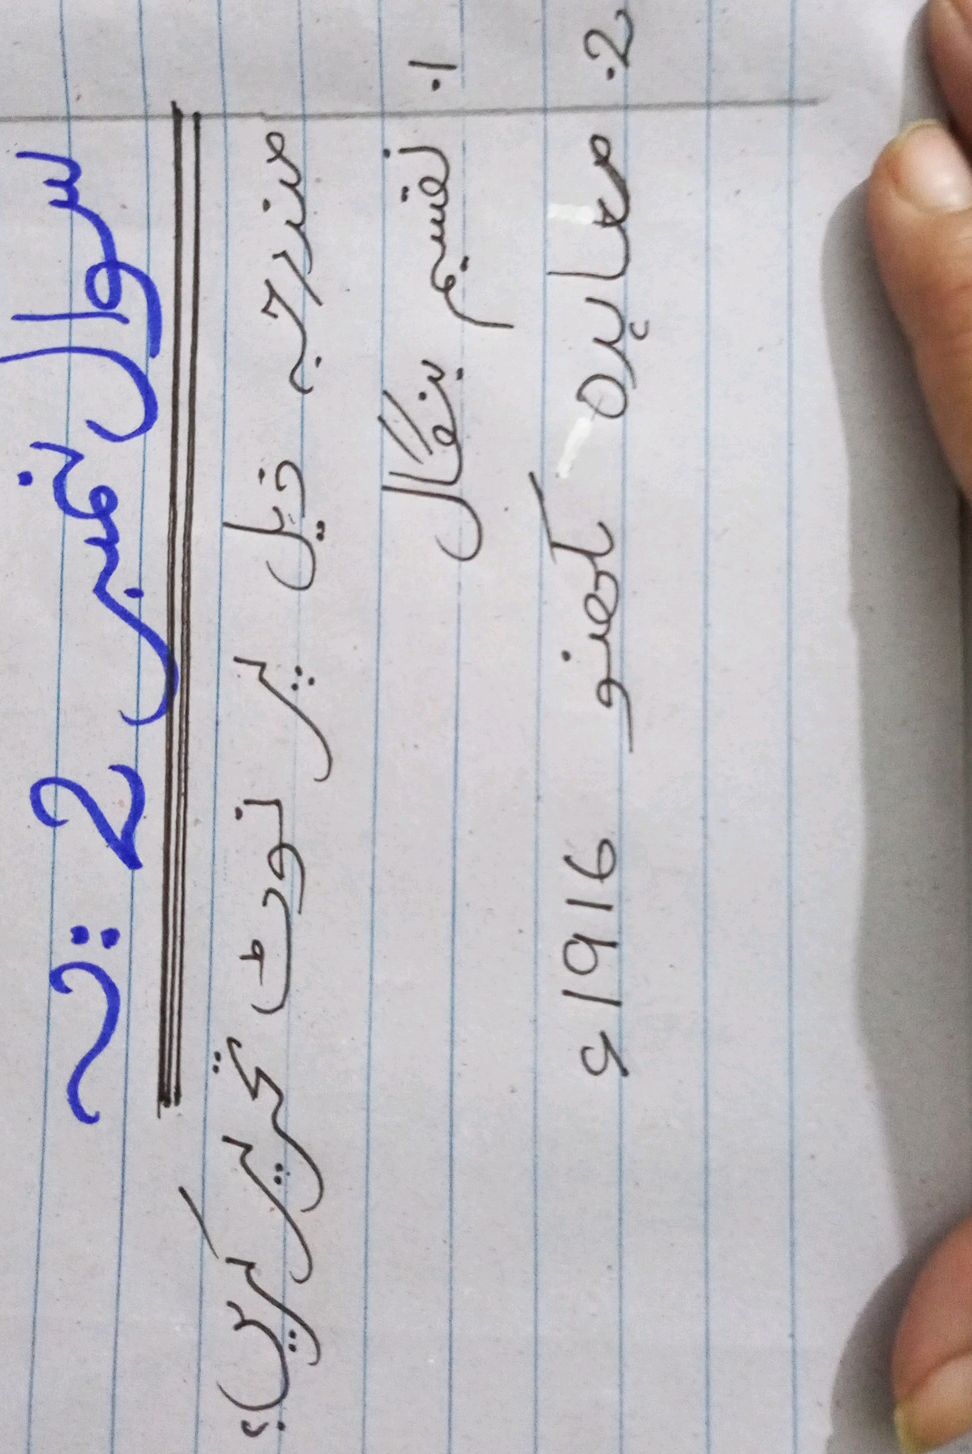 سوال نمبر 2 :۔
مندرجہ ذیل پر نوٹ تحریر کریں؟
1. تقسیم بنگال
2. معاہدہ لکھنو 1916ء